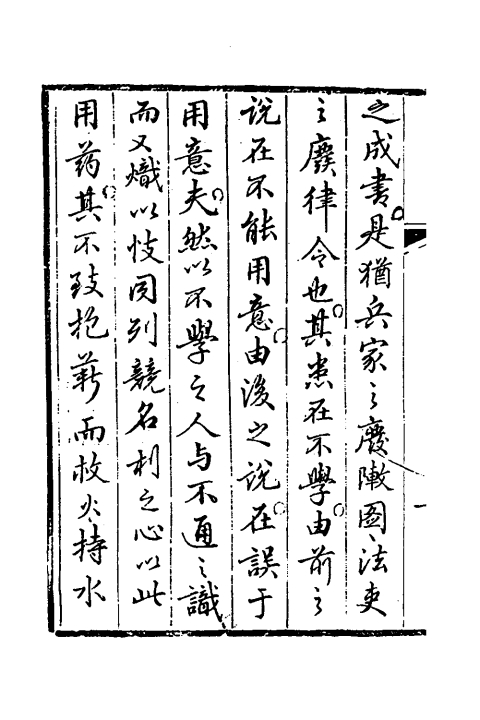 之成书。是猶兵家之廢陣图、法吏
之廢律令也。其患在不學。由前之
说在不能用意。由後之说。在誤于
用意。夫然以不學之人与不通之識
而又熾以忮同列競名利之心以此
用药。其不致抱薪而救火、持水